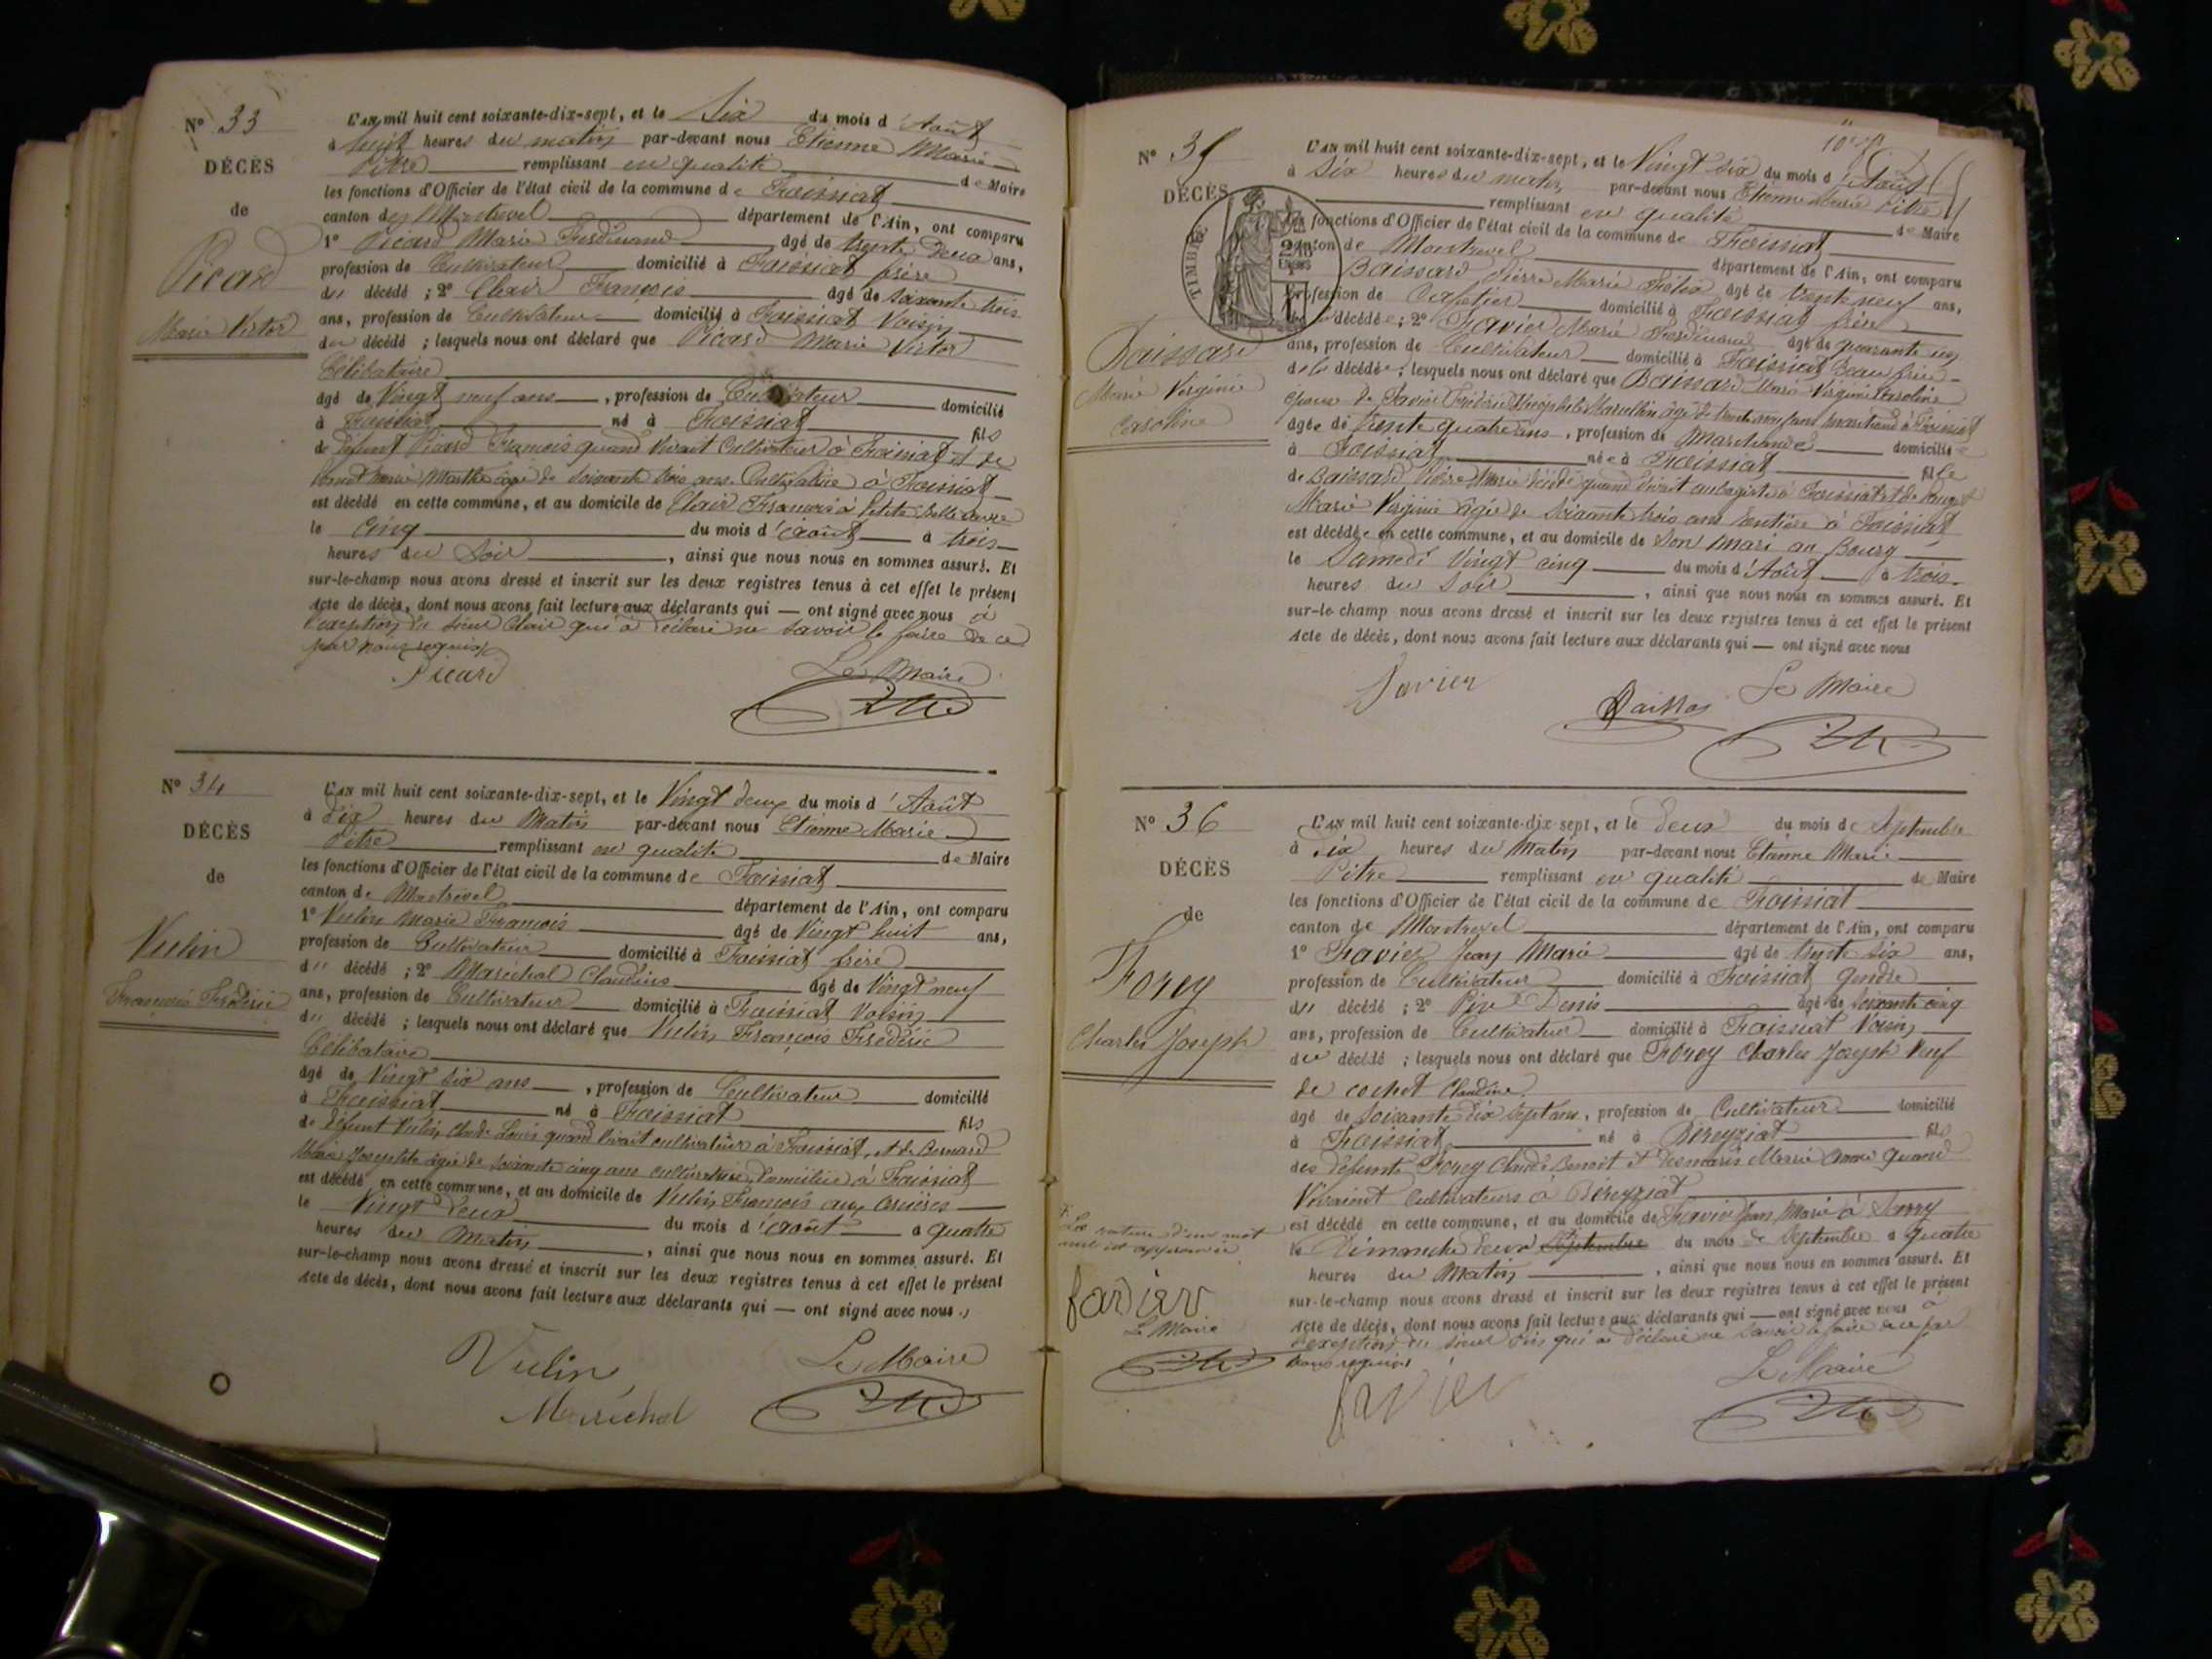 N° 33
DÉCÈS
de
Picard
Marie Victor
L'AN mil huit cent soixante-dix-sept, et le Six du mois d'Août
à huit heures du matin par-devant nous Etienne Marie
Pitre remplissant en qualité de Maire
les fonctions d'Officier de l'état civil de la commune de Foissiat
canton de Montrevel département de l'Ain, ont comparu
1° Picard Marie Ferdinand âgé de trente deux ans,
profession de Cultivateur domicilié à Foissiat frère
du décédé ; 2° Clair François âgé de soixante trois
ans, profession de Cultivateur domicilié à Foissiat Voisin
du décédé ; lesquels nous ont déclaré que Picard Marie Victor
Célibataire
âgé de Vingt neuf ans, profession de Cultivateur domicilié
à Foissiat né à Foissiat fils
de défunt Picard François quand Vivait Cultivateur à Foissiat et de
Marie Marthe âgée de soixante trois ans Cultivatrice à Foissiat
est décédé en cette commune, et au domicile de Clair François à Petite
le cinq du mois d'août à trois
heures du Soir, ainsi que nous nous en sommes assuré. Et
sur-le-champ nous avons dressé et inscrit sur les deux registres tenus à cet effet le présent
Acte de décès, dont nous avons fait lecture aux déclarants qui — ont signé avec nous à
l'exception du sieur Clair qui a déclaré ne savoir le faire de ce
par nous requis
Picard
Le Maire
N° 34
DÉCÈS
de
Vulin
François Frédéric
L'AN mil huit cent soixante-dix-sept, et le Vingt deux du mois d'Août
à dix heures du Matin par-devant nous Etienne Marie
Pitre remplissant en qualité de Maire
les fonctions d'Officier de l'état civil de la commune de Foissiat
canton de Montrevel département de l'Ain, ont comparu
1° Vulin Marie François âgé de Vingt huit ans,
profession de Cultivateur domicilié à Foissiat frère
du décédé ; 2° Maréchal Claudius âgé de Vingt neuf
ans, profession de Cultivateur domicilié à Foissiat Voisin
du décédé ; lesquels nous ont déclaré que Vulin François Frédéric
Célibataire
âgé de Vingt six ans, profession de Cultivateur domicilié
à Foissiat né à Foissiat fils
de défunt Vulin Claude Louis quand Vivait cultivateur à Foissiat, et de Bernard
Marie Josephte âgée de soixante cinq ans cultivatrice, domiciliée à Foissiat
est décédé en cette commune, et au domicile de Vulin François aux
le Vingt deux du mois d'août à quatre
heures du Matin, ainsi que nous nous en sommes assuré. Et
sur-le-champ nous avons dressé et inscrit sur les deux registres tenus à cet effet le présent
Acte de décès, dont nous avons fait lecture aux déclarants qui — ont signé avec nous
Vulin
Maréchal
Le Maire
N° 35
DÉCÈS
TIMBRE
Baissard
Marie Virginie
Caroline
L'AN mil huit cent soixante-dix-sept, et le Vingt six du mois d'Août
à Six heures du matin par-devant nous Etienne Marie Pitre
remplissant en qualité de Maire
les fonctions d'Officier de l'état civil de la commune de Foissiat
canton de Montrevel département de l'Ain, ont comparu
Baissard Pierre Marie Félix âgé de trente neuf ans,
profession de domicilié à Foissiat frère
décédée ; 2° Favier Marie Ferdinand âgé de quarante un
ans, profession de Cultivateur domicilié à Foissiat Beau frère
de la décédée ; lesquels nous ont déclaré que Baissard Marie Virginie Caroline
épouse de Favier Frédéric Théophile Marcellin âgé de trente neuf ans marchand à Foissiat
âgée de trente quatre ans, profession de Marchande domiciliée
à Foissiat née à Foissiat fille
de Baissard Pierre Marie décédé quand vivait aubergiste à Foissiat et de
Marie Virginie âgée de soixante trois ans Rentière à Foissiat
est décédée en cette commune, et au domicile de Son Mari au Bourg
le Samedi Vingt cinq du mois d'Août à trois
heures du Soir, ainsi que nous nous en sommes assuré. Et
sur-le-champ nous avons dressé et inscrit sur les deux registres tenus à cet effet le présent
Acte de décès, dont nous avons fait lecture aux déclarants qui — ont signé avec nous
Favier
Le Maire
N° 36
DÉCÈS
de
Forey
Charles Joseph
L'AN mil huit cent soixante-dix-sept, et le deux du mois de Septembre
à dix heures du Matin par-devant nous Etienne Marie
Pitre remplissant en qualité de Maire
les fonctions d'Officier de l'état civil de la commune de Foissiat
canton de Montrevel département de l'Ain, ont comparu
1° Favier Jean Marie âgé de trente six ans,
profession de Cultivateur domicilié à Foissiat gendre
du décédé ; 2° Denis âgé de soixante cinq
ans, profession de Cultivateur domicilié à Foissiat Voisin
du décédé ; lesquels nous ont déclaré que Forey Charles Joseph Veuf
de cochet Claudine
âgé de Soixante dix sept ans, profession de Cultivateur domicilié
à Foissiat né à Béreyziat fils
des défunts Forey Claude Benoit et Desmaris Marie Anne quand
Vivaient Cultivateurs à Béreyziat
est décédé en cette commune, et au domicile de Favier Jean Marie à
le Dimanche deux Septembre du mois de Septembre à quatre
heures du Matin, ainsi que nous nous en sommes assuré. Et
sur-le-champ nous avons dressé et inscrit sur les deux registres tenus à cet effet le présent
Acte de décès, dont nous avons fait lecture aux déclarants qui — ont signé avec nous à
l'exception du sieur qui a déclaré ne savoir le faire de ce par
nous requis
La rature d'un mot
nul est approuvée
favier
Le Maire
favier
Le Maire